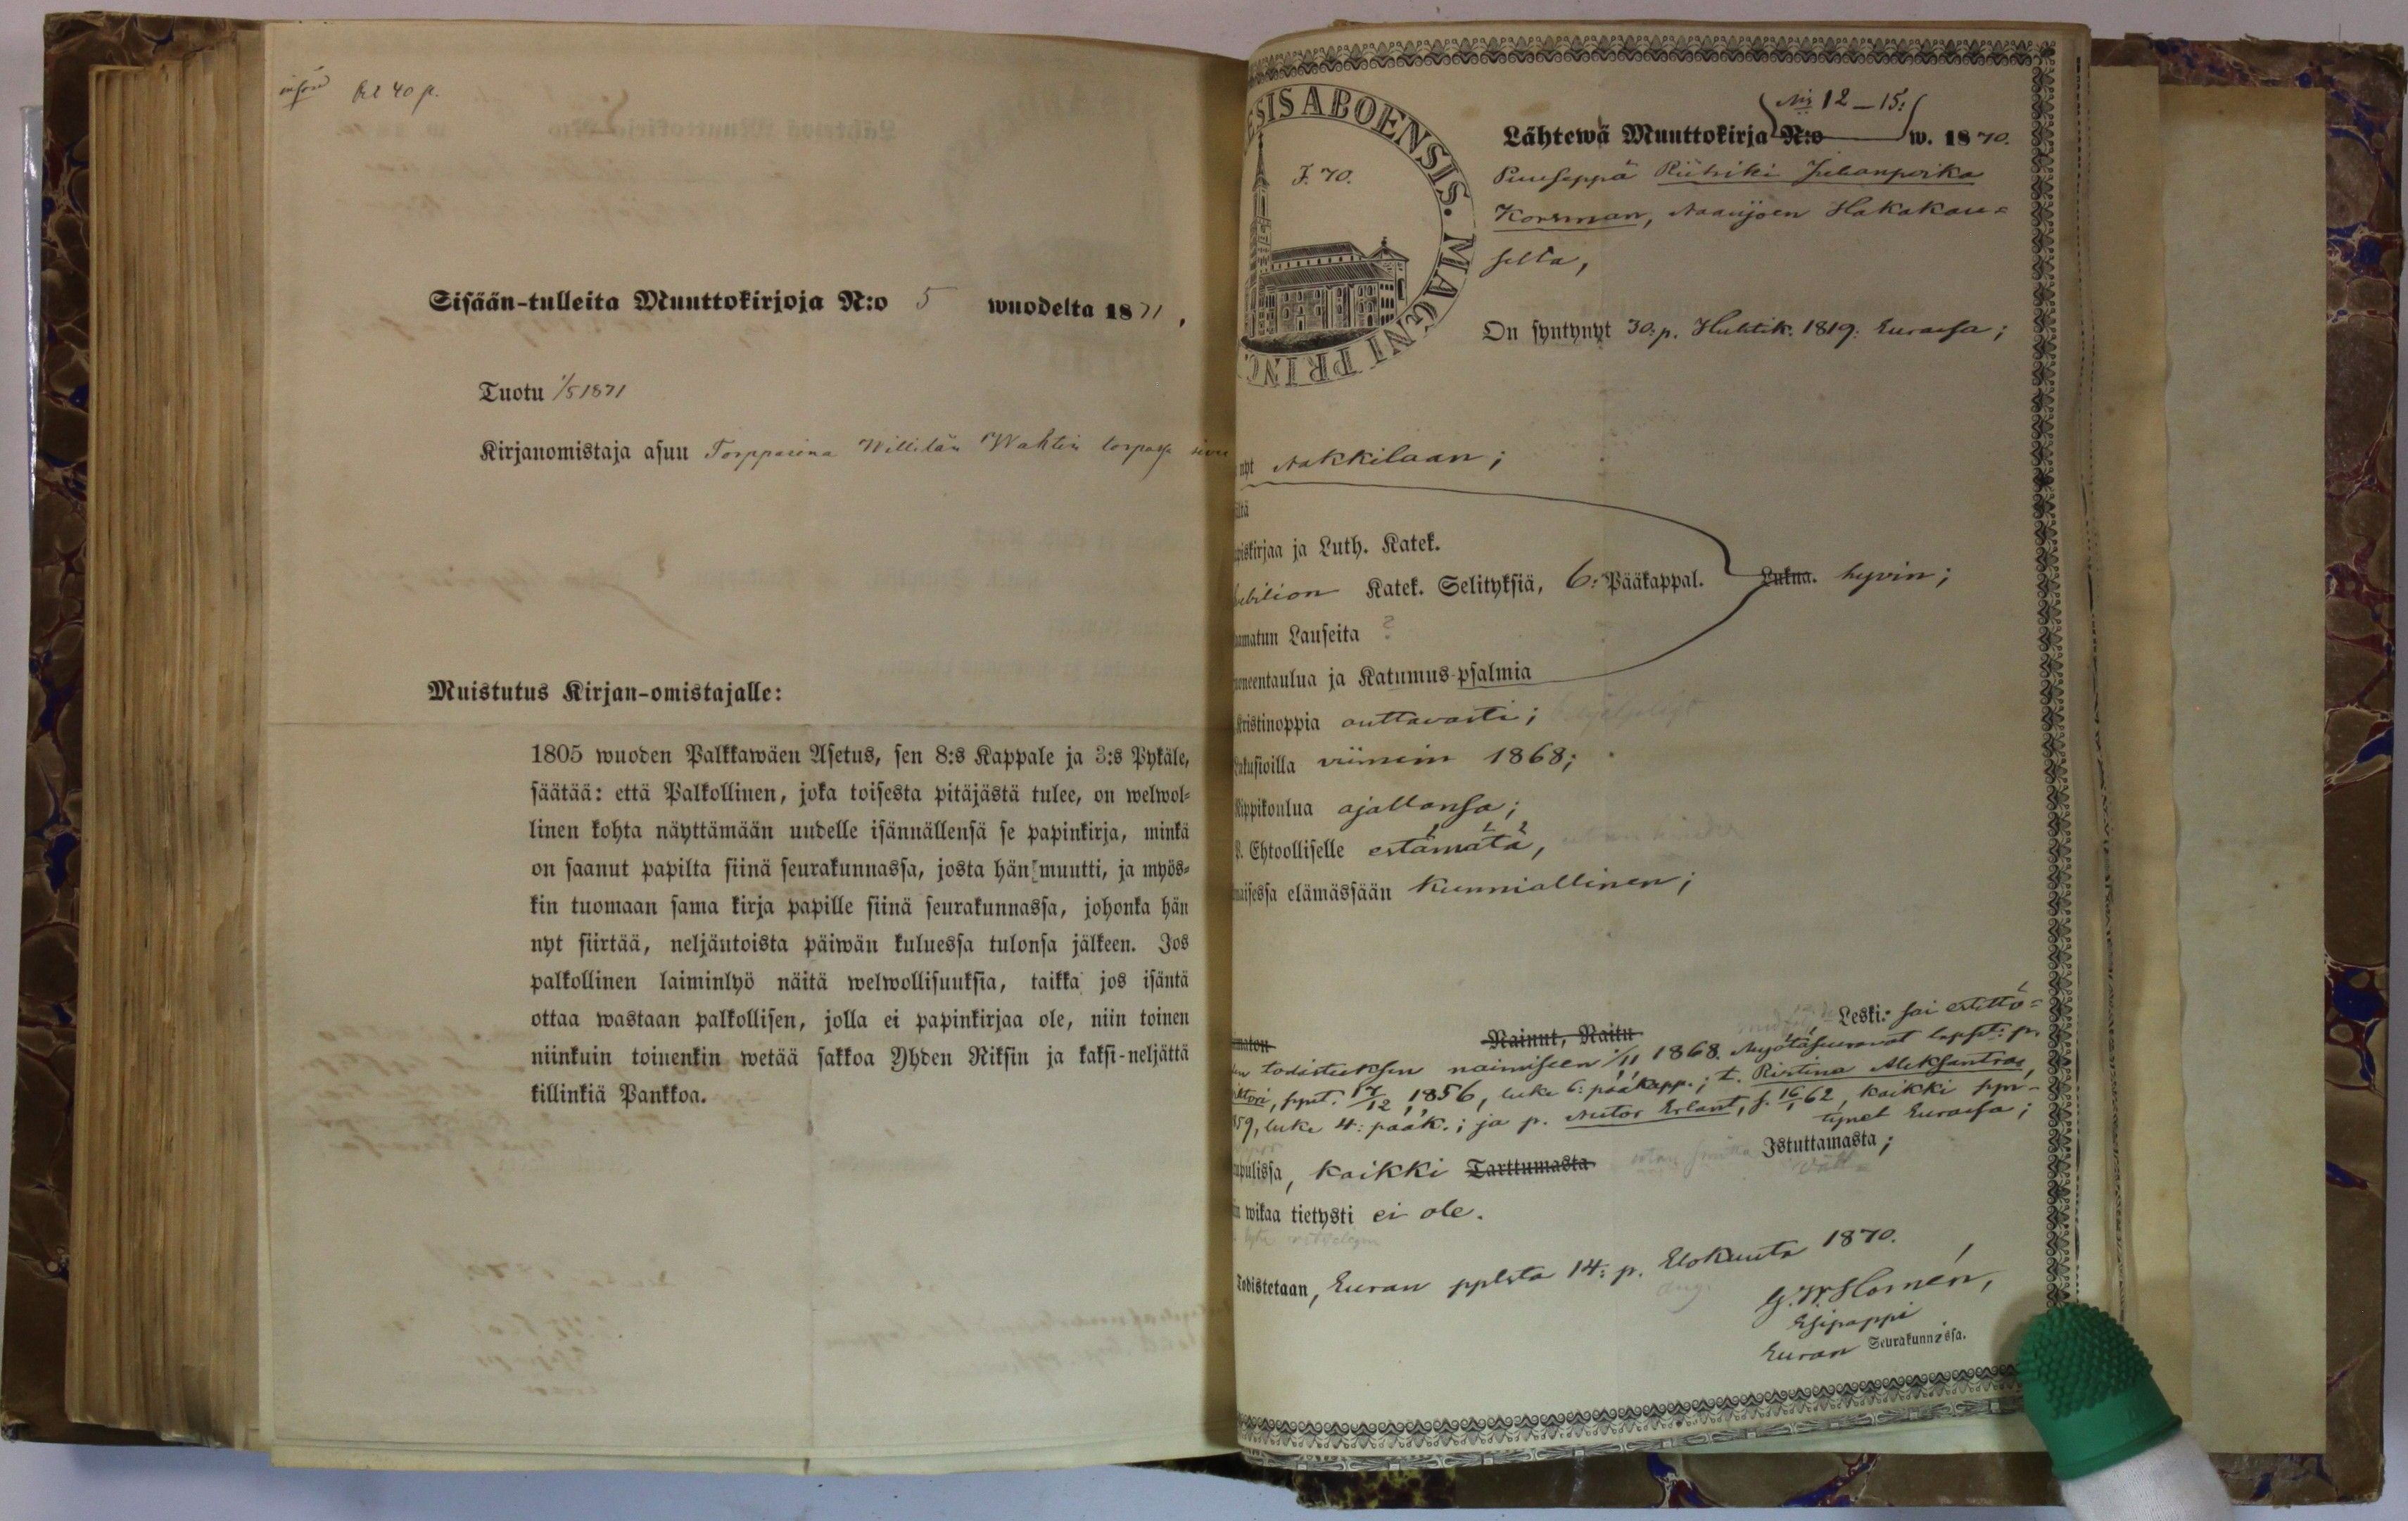 införd fol 40 p.
Sisään-tulleita Muuttokirjoja N:o 5 wuodelta 1871,
Tuotu 1/5 1871
Kirjanomistaja asuu Torpparina Willilän Wahtin torpassa
Muistutus Kirjan-omistajalle:
1805 wuoden Palkkawäen Asetus, sen 8:s Kappale ja 3:s Pykäle,
säätää: että Palkollinen, joka toisesta pitäjästä tulee, on welwol=
linen kohta näyttämään uudelle isännällensä se papinkirja, minkä
on saanut papilta siinä seurakunnassa, josta hän muutti, ja myös=
kin tuomaan sama kirja papille siinä seurakunnassa, johonka hän
nyt siirtää, neljäntoista päiwän kuluessa tulonsa jälkeen. Jos
palkollinen laiminlyö näitä welwollisuuksia, taikka jos isäntä
ottaa wastaan palkollisen, jolla ei papinkirjaa ole, niin toinen
niinkuin toinenkin wetää sakkoa Yhden Riksin ja kaksi-neljättä
killinkiä Pankkoa.
ESIS ABOENSIS. MAGNI PRINC
F. 70.
No 12-15:
Lähtewä Muuttokirja N:o w. 1870.
Puuseppä Riihiki Juhanpoika
Korsman, Naarijoen Hakakau=
selta,
On syntynyt 30. p. Huhtik. 1819. Eurassa;
nyt Nakkilaan;
ltä
piskirjaa ja Luth. Katek.
bilion Katek. Selityksiä, 6: Pääkappal. Lukua. hyvin;
amatun Lauseita ?
uoneentaulua ja Katumus-psalmia
Kristinoppia auttavasti;
Lukusioilla viimein 1868;
Rippikoulua ajallansa;
P. Ehtoolliselle estämätä,
maisessa elämässään kunniallinen;
maton Nainut, Naitu Leski: sai estettö=
en todisteeksen naimiseen 1/11 1868. Myötäseuraavat lapset: p.
ktori, synt. 17/12 1856, luke 6: pääkapp.; t. Ristina Aleksantra,
859, luke 4: pääk.; ja p. Nestor Erlant, s. 16/1 62, kaikki syn=
tynet Eurassa;
upulissa, kaikki Tarttumasta Istuttamasta;
n wikaa tietysti ei ole.
Todistetaan, Euran pplsta 14: p. Elokuuta 1870.
G. W. Homén,
Esipappi
Euran Seurakunnassa.